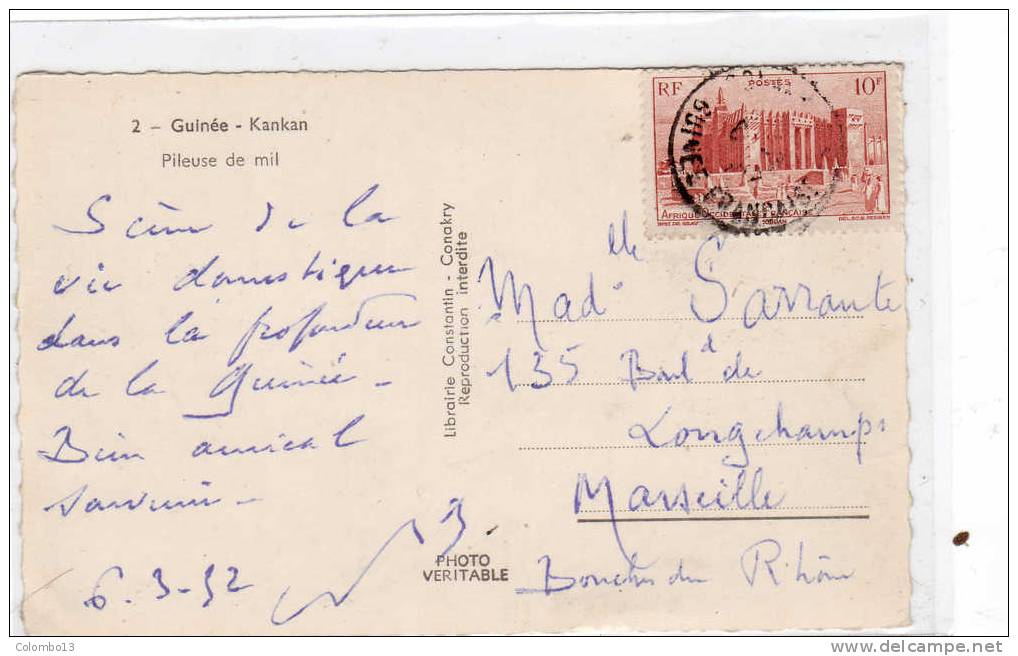 2 - Guinée - Kankan
Pileuse de mil
Scène de la
vie domestique
dans la profondeur
de la Guinée -
Bien amical
souvenir -
6.3-52
Librairie Constantin - Conakry
Reproduction interdite
PHOTO
VERITABLE
RF POSTES 10F
AFRIQUE OCCIDENTALE FRANÇAISE
GUINÉE FRANÇAISE
Madelle Sarrante
135 Bould de
Longchamps
Marseille
Bouches du Rhône
Colombo13
www.delcampe.net